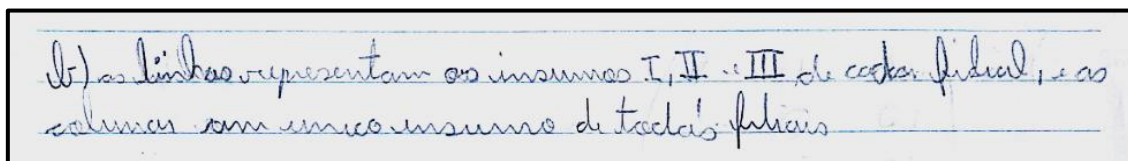 b) as linhas representam os insumos I, II e III de cada filial, e as
colunas um unico insumo de todas filiais